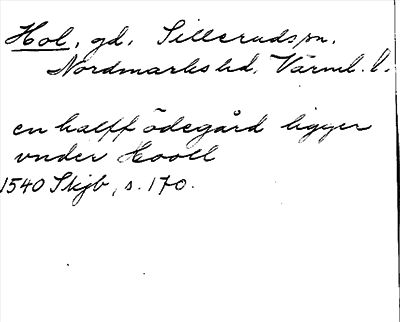 Hol, gd, Sillerudssn.
Nordmarks hd, Värml. l.
en halff ödegård ligger
vnder Hooll
1540 Skjb, s. 170.